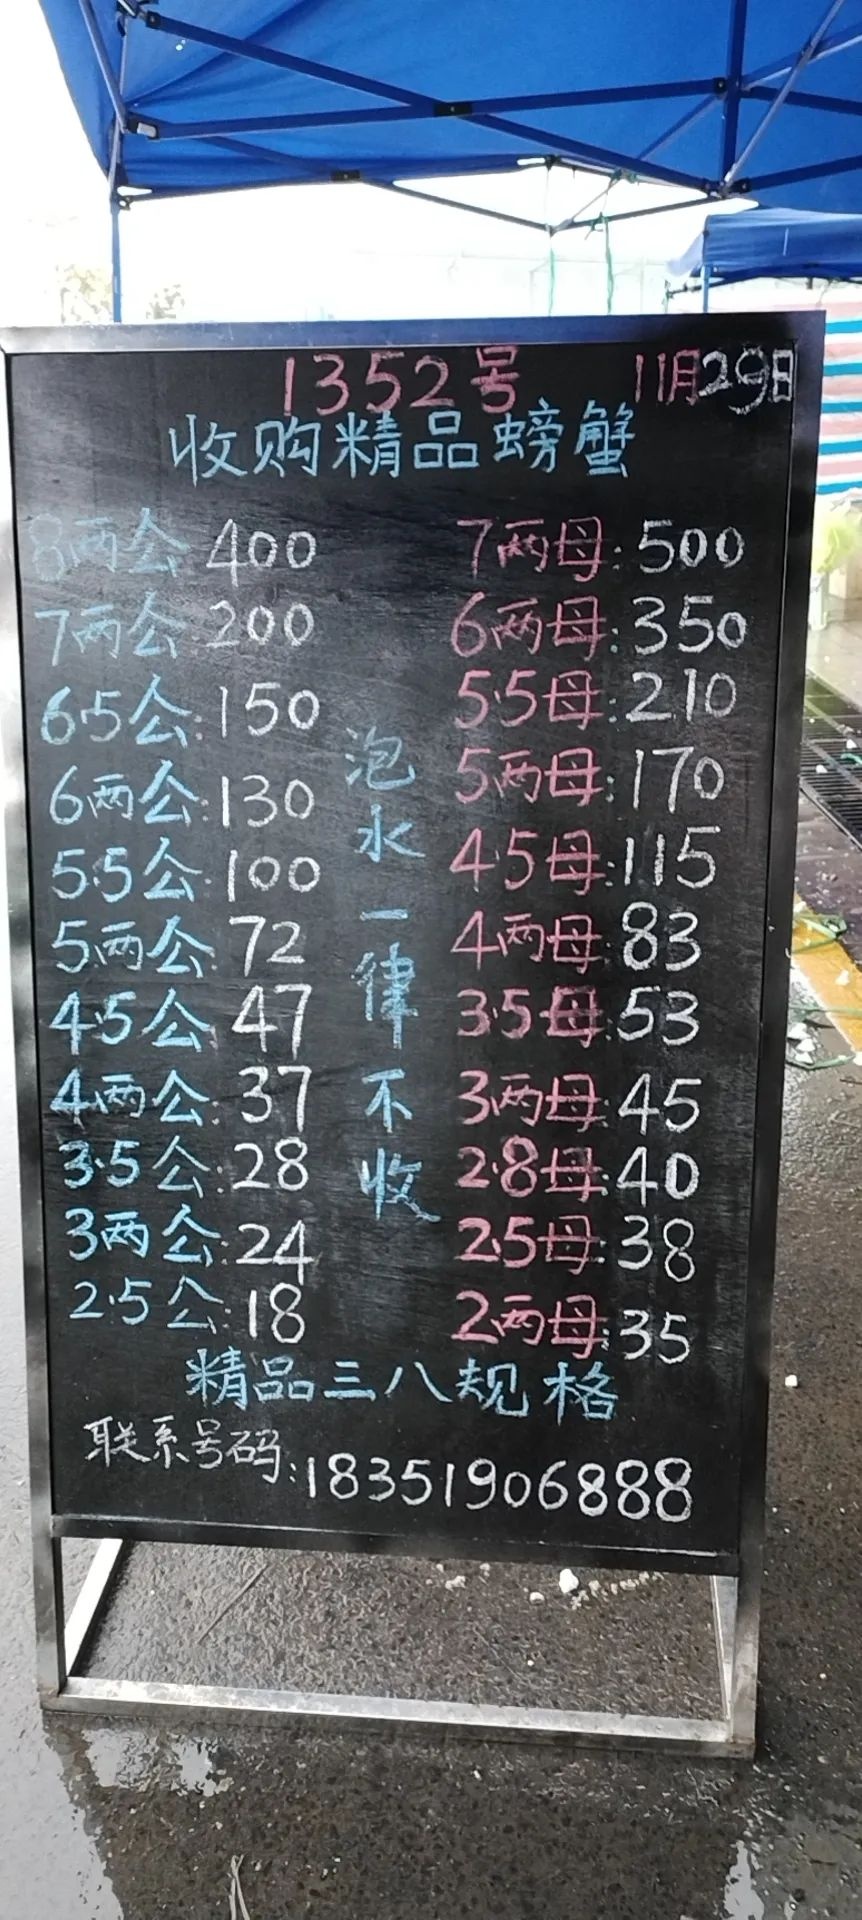 1352号 11月29日
收购精品螃蟹
8两公:400 7两母:500
7两公:200 6两母:350
6.5公:150 5.5母:210
6两公:130 5两母:170
5.5公:100 4.5母:115
5两公:72 4两母:83
4.5公:47 3.5母:53
4两公:37 3两母:45
3.5公:28 2.8母:40
3两公:24 2.5母:38
2.5公:18 2两母:35
泡水一律不收
精品三八规格
联系号码:18351906888